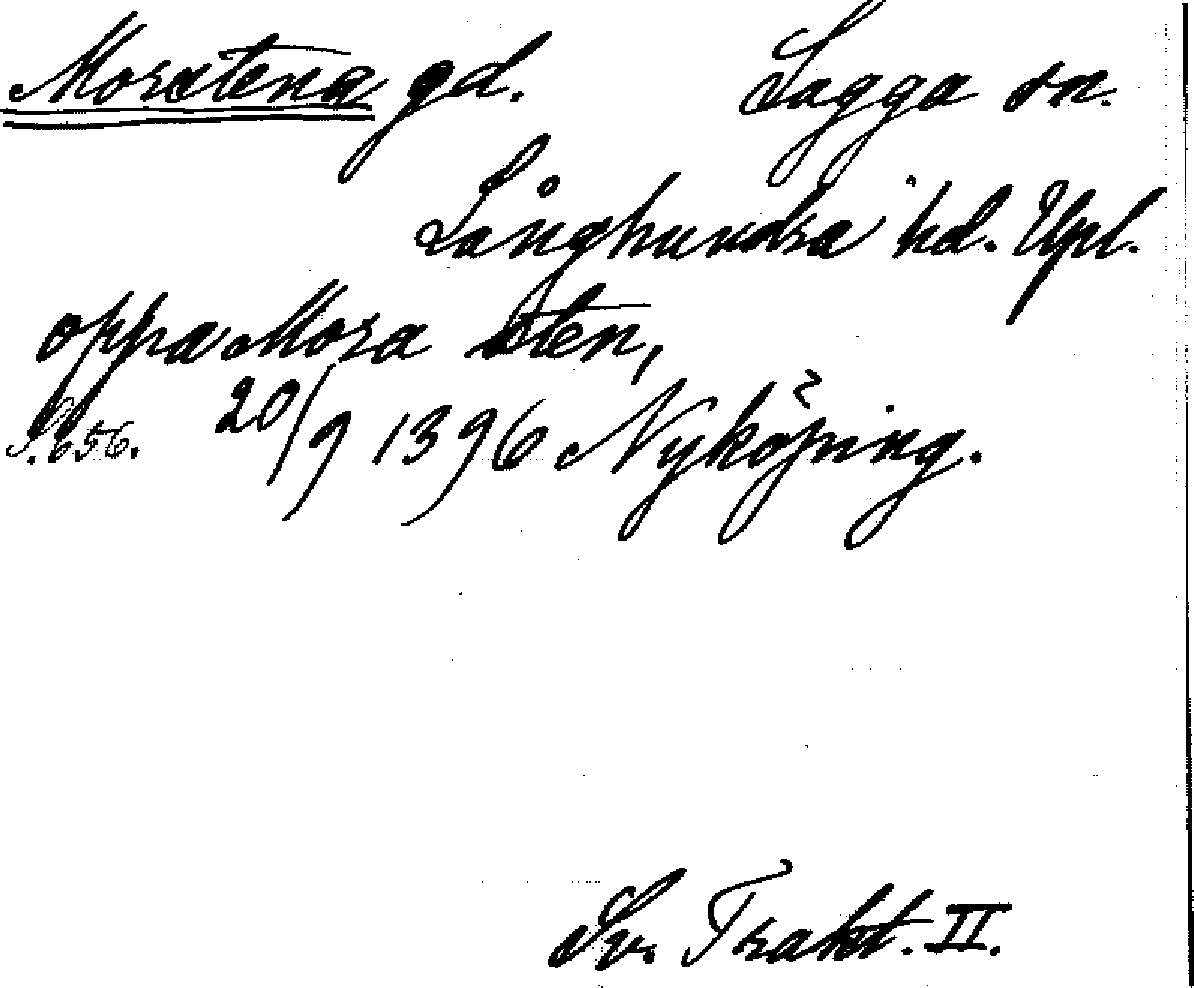 Morastena gd. Lagga sn.
Långhundra hd. Upl.
oppa Mora sten,
S. 656. 20/9 1396 Nyköping.
Sv. Trakt. II.